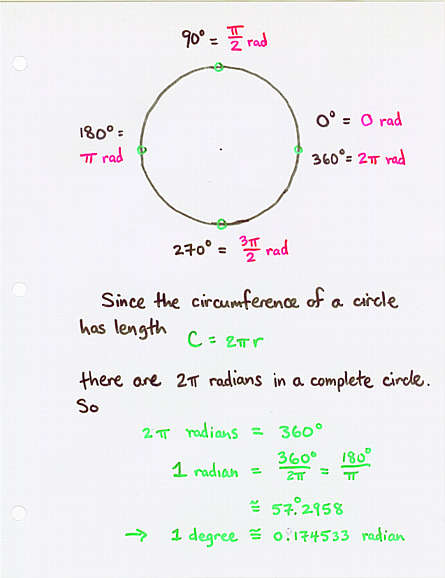 90° = π/2 rad
0° = 0 rad
180° =
π rad
360° = 2π rad
270° = 3π/2 rad
Since the circumference of a circle
has length
C = 2πr
there are 2π radians in a complete circle.
So
2π radians = 360°
1 radian = 360°/2π = 180°/π
≅ 57.°2958
→ 1 degree ≅ 0.174533 radian